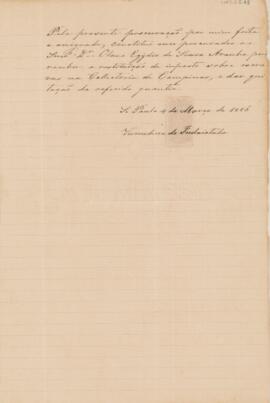 Pela presente procuração por mim feita
e assignada, constituo meu procurador o
Snr. Dr. Olavo Egydio de Souza Aranha, para
receber a restituição do imposto sobre
na Collectoria de Campinas, e dar qui
tação da referida quantia
S. Paulo 4 de Março de 1886
de Indaiatuba